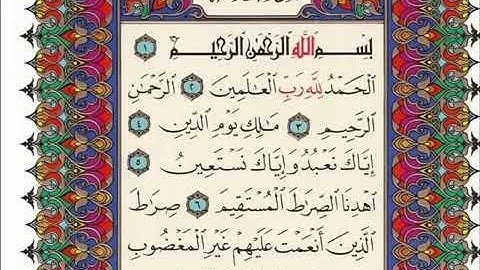 بِسْمِ ٱللَّهِ ٱلرَّحْمَٰنِ ٱلرَّحِيمِ ١
ٱلْحَمْدُ لِلَّهِ رَبِّ ٱلْعَٰلَمِينَ ٢ ٱلرَّحْمَٰنِ
ٱلرَّحِيمِ ٣ مَٰلِكِ يَوْمِ ٱلدِّينِ ٤
إِيَّاكَ نَعْبُدُ وَإِيَّاكَ نَسْتَعِينُ ٥
ٱهْدِنَا ٱلصِّرَٰطَ ٱلْمُسْتَقِيمَ ٦ صِرَٰطَ
ٱلَّذِينَ أَنْعَمْتَ عَلَيْهِمْ غَيْرِ ٱلْمَغْضُوبِ